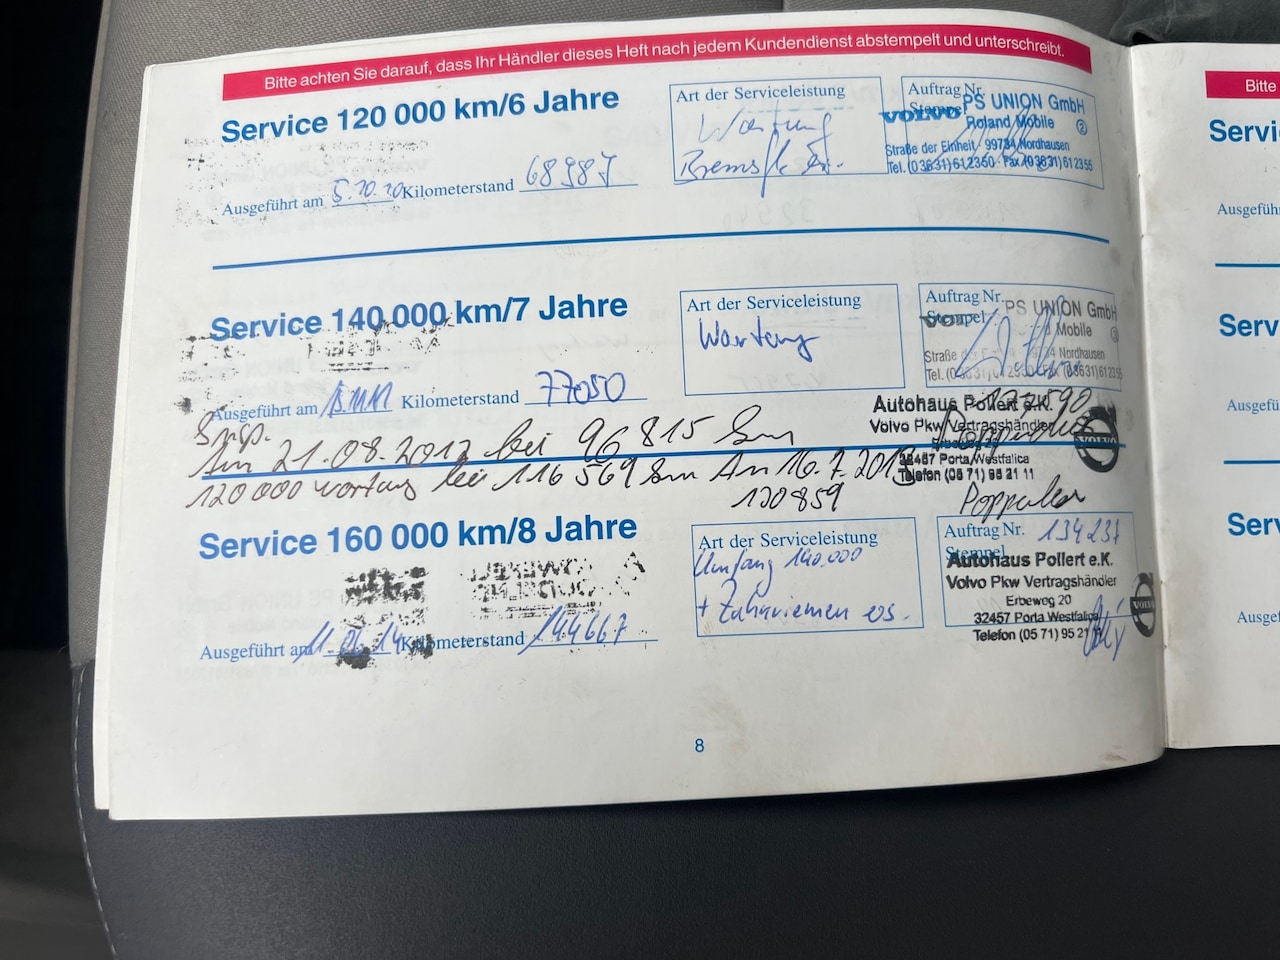 Bitte achten Sie darauf, dass Ihr Händler dieses Heft nach jedem Kundendienst abstempelt und unterschreibt.
Service 120 000 km/6 Jahre
Art der Serviceleistung
Wartung
Auftrag Nr.
Stempel
VOLVO PS UNION GmbH
Roland Mobile
Straße der Einheit 99734 Nordhausen
Tel. (03631) 612350 · Fax (03631) 612355
Ausgeführt am 5.10.10 Kilometerstand
Service 140 000 km/7 Jahre
Art der Serviceleistung
Wartung
Auftrag Nr.
Stempel
PS UNION GmbH
Mobile
Straße 99734 Nordhausen
Ausgeführt am Kilometerstand 77050
Autohaus Pollert e.K.
Volvo Pkw Vertragshändler
Erbeweg 20
32457 Porta Westfalica
Telefon (05 71) 95 21 11
VOLVO
Am 21.08.2012 bei 96 815 km
120 000 Wartung bei 116 569 km Am 16.7.2013
130859
Service 160 000 km/8 Jahre
Art der Serviceleistung
Umfang 140.000
+ Zahnriemen ers.
Auftrag Nr. 134237
Stempel
Autohaus Pollert e.K.
Volvo Pkw Vertragshändler
Erbeweg 20
32457 Porta Westfalica
Telefon (05 71) 95 21
VOLVO
Ausgeführt am 11.06.14 Kilometerstand 144667
8
Bitte
Servi
Ausgefüh
Serv
Ausgefü
Serv
Ausgef